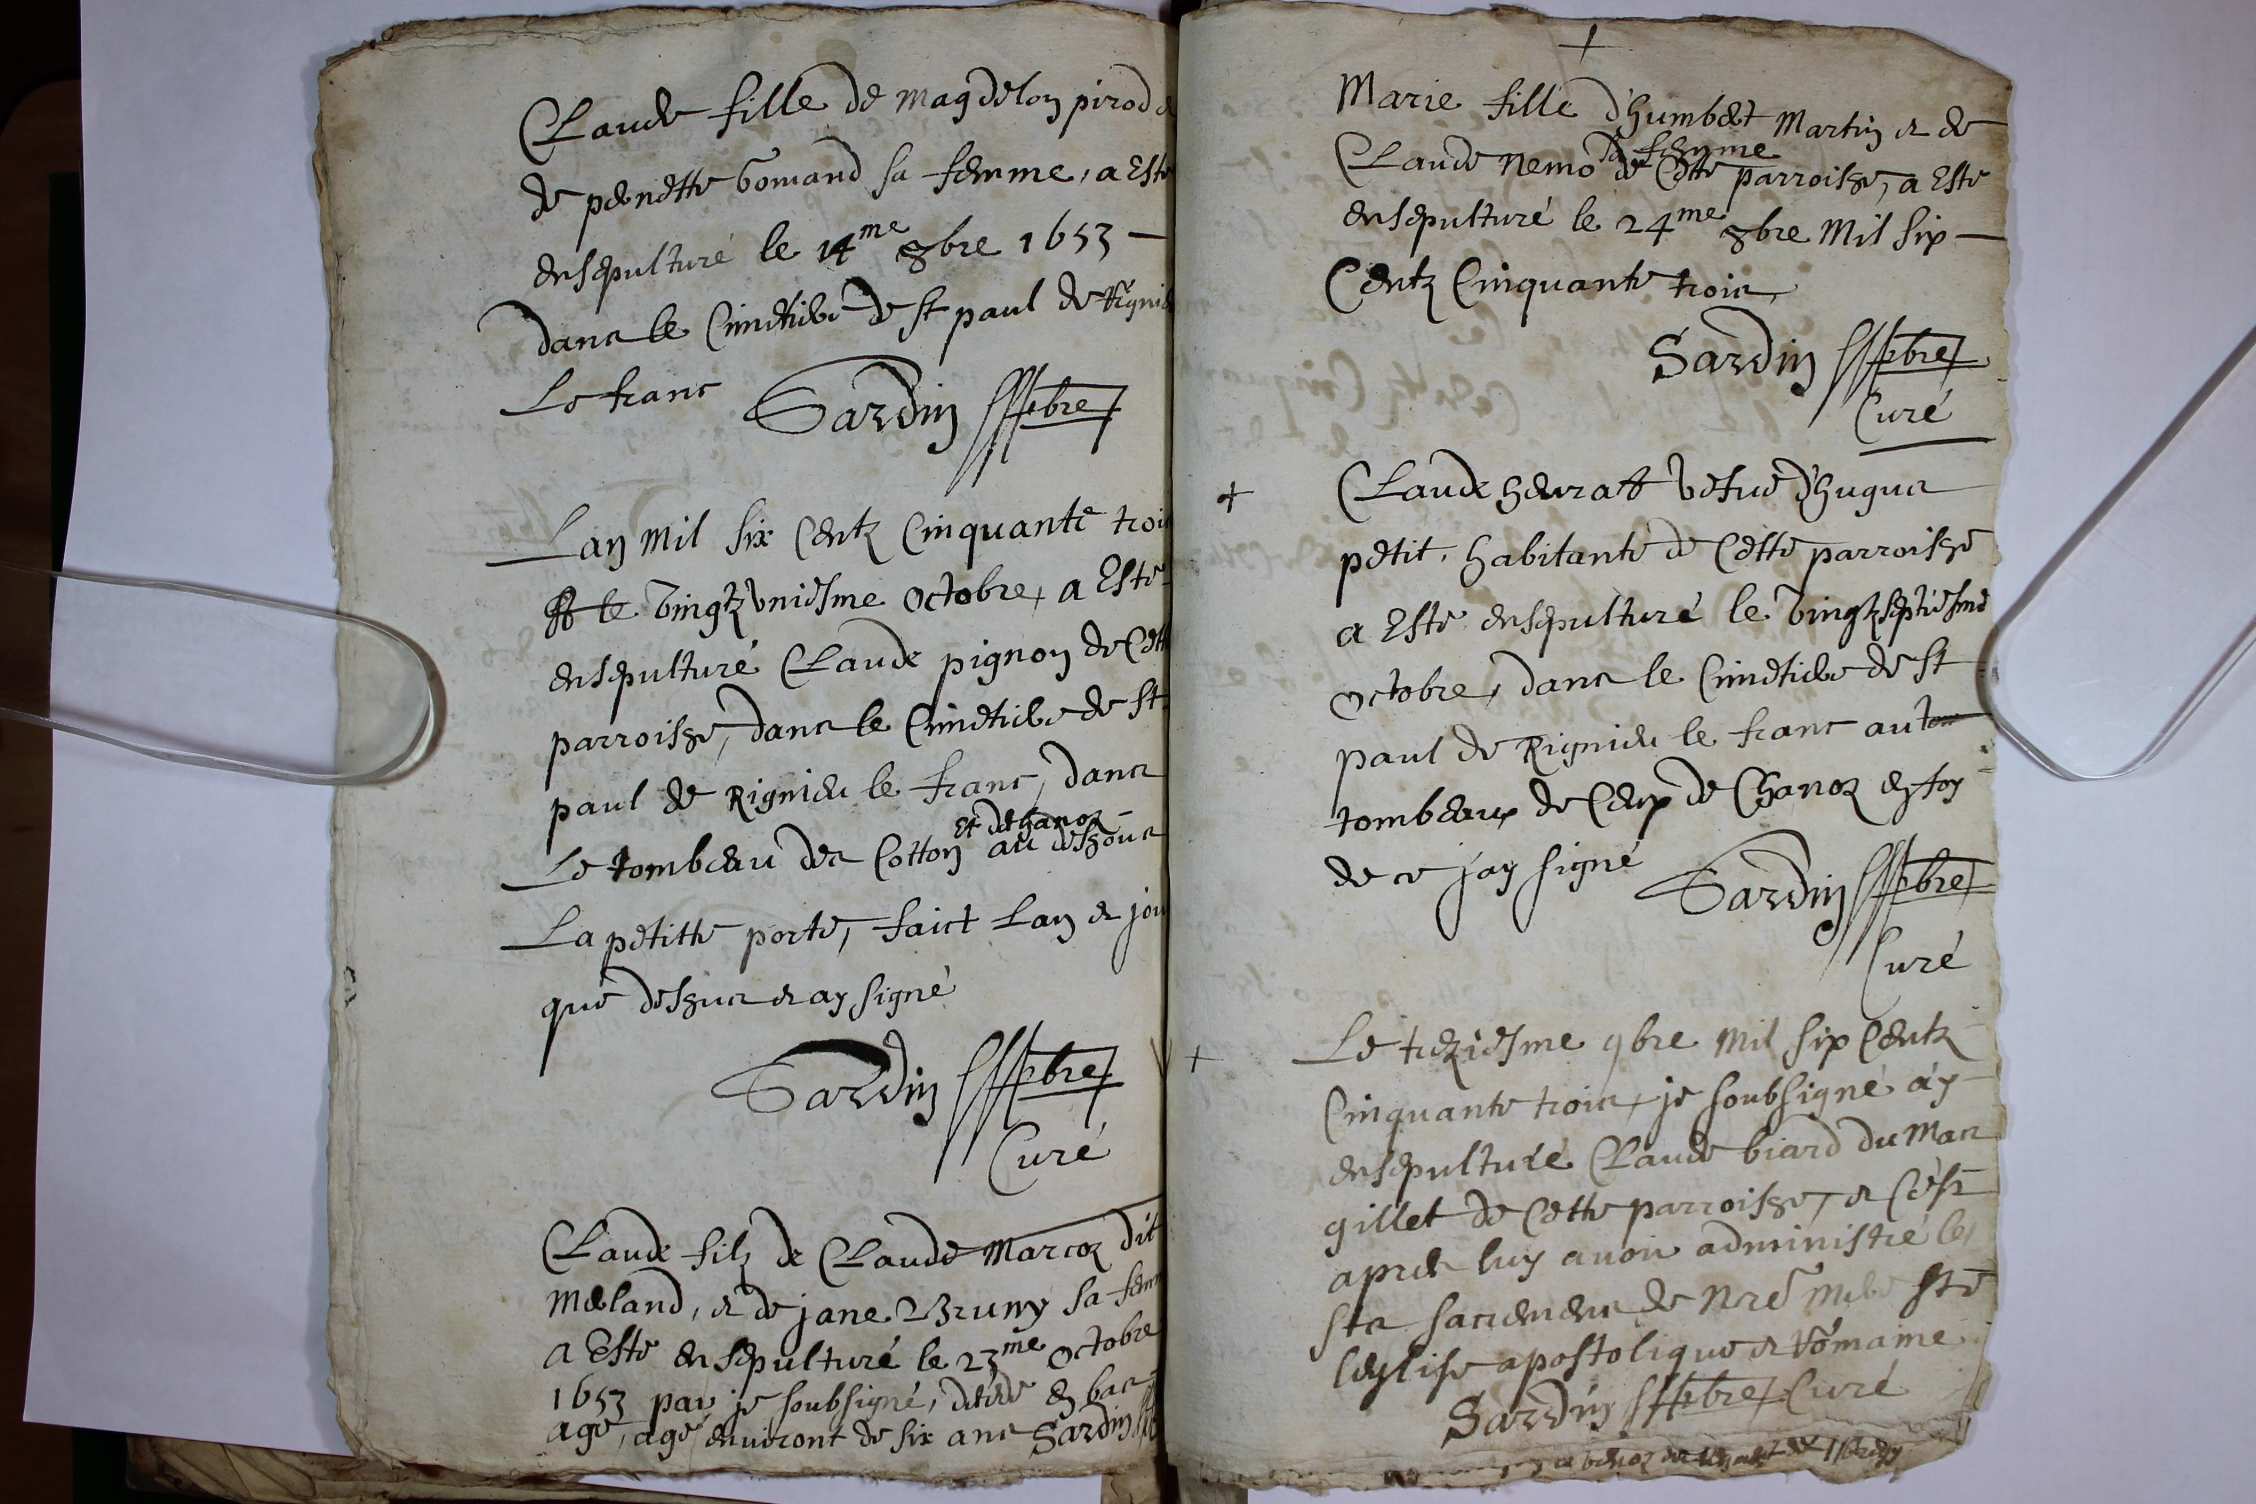 Claude fille de Magdelon pirod &
de pernette Gomand sa femme, a Esté
ensepulturé le 14me 8bre 1653
dans le Cimetiere de st paul de Rignie
Le franc Sardin pbre
Lan Mil six Centz Cinquante trois
le vingtz uniesme octobre, a Esté
ensepulturé Claude pignon de Cett
parroisse, dans le Cimetiere de st
paul de Rignieu le franc, dans
et de hanoz
Le tombeau des Cotton au dessous
La petitte porte, faict Lan & jou
que dessus & ay signé
Sardin pbre
Curé
Claude filz de Claude Marcoz dit
Merland, & de jane Bruny sa fem
a Esté ensepulturé le 23me octobre
1653 par je soubsigné, decede en bas
age, agé environt de six ans Sardin
Marie fille d'humbert Martin & de
sa femme
Claude Nemo de Cette parroisse, a Esté
ensepulturé le 24me 8bre Mil six
Centz Cinquante trois,
Sardin pbre
Curé
+ Claude vefue d'hugues
petit, habitante de Cette parroisse
a Esté ensepulturé le vingtz septiesme
octobre, dans le Cimetiere de st
paul de Rignieu le franc au
tombeaux de Ceux de Chanoz en foy
de ce j'ay signé Sardin pbre
Curé
+ Le treziesme 9bre Mil six Centz
Cinquante trois, je soubsigné ay
ensepulturé Claude biard du Mas
gillet de Cette parroisse, & C'est
apres luy avoir administré les
sts sacremens de Nre Mere ste
leglise apostolique & Romaine
Sardin pbre Curé